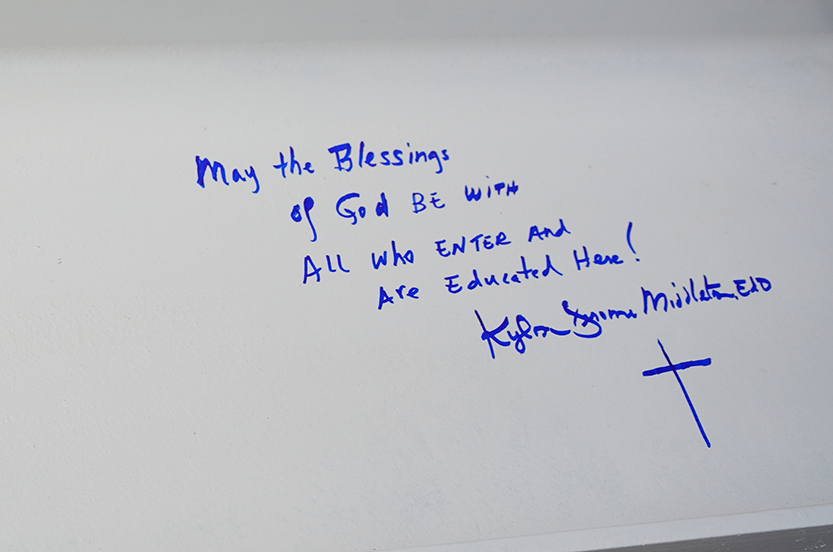 May the Blessings
of God BE WITH
All who ENTER And
Are Educated Here!
Kylon Jerome Middleton, EdD